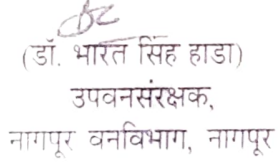 (डॉ. भारत सिंह हाडा)
उपवनसंरक्षक,
नागपूर वनविभाग, नागपूर